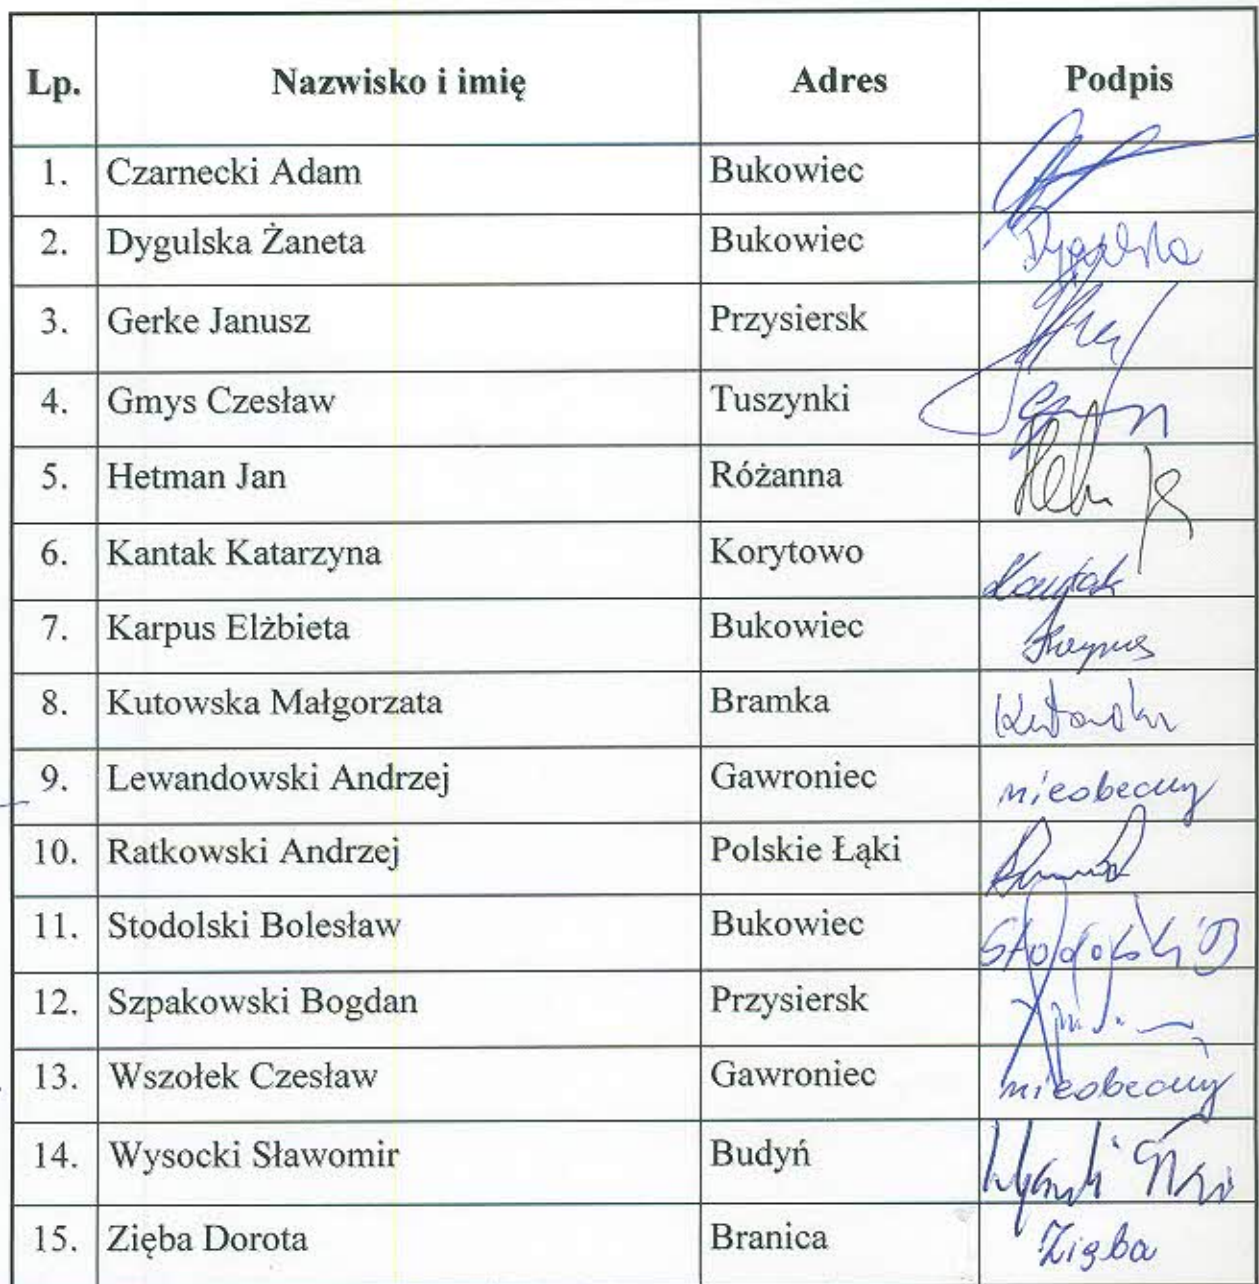 Lp. Nazwisko i imię Adres Podpis
1. Czarnecki Adam Bukowiec
2. Dygulska Żaneta Bukowiec Dygulska
3. Gerke Janusz Przysiersk
4. Gmys Czesław Tuszynki
5. Hetman Jan Różanna
6. Kantak Katarzyna Korytowo Kantak
7. Karpus Elżbieta Bukowiec Karpus
8. Kutowska Małgorzata Bramka Kutowska
9. Lewandowski Andrzej Gawroniec nieobecny
10. Ratkowski Andrzej Polskie Łąki
11. Stodolski Bolesław Bukowiec Stodolski B
12. Szpakowski Bogdan Przysiersk
13. Wszołek Czesław Gawroniec nieobecny
14. Wysocki Sławomir Budyń
15. Zięba Dorota Branica Zięba